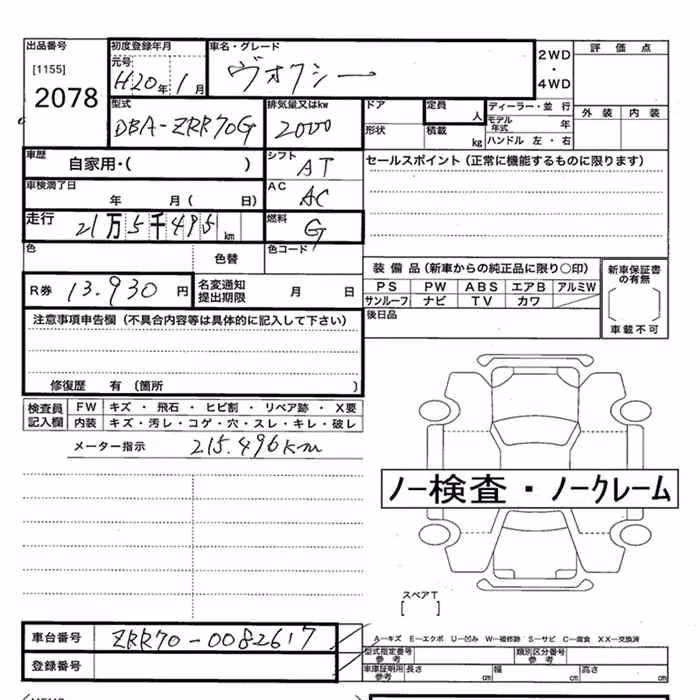 出品番号
[1155]
2078
初度登録年月
元号
H20年 1月
車名・グレード
ヴォクシー
2WD
・
4WD
評価点
外装 内装
型式
DBA-ZRR70G
排気量又はkw
2000
ドア
形状
定員
人
積載
kg
ディーラー・並行
モデル年式 年
ハンドル 左・右
車歴
自家用・( )
シフト
AT
セールスポイント(正常に機能するものに限ります)
車検満了日
年 月( 日)
AC
AC
走行
21万5千495km
燃料
G
色
色替
色コード
R券 13.930円
名変通知
提出期限
月 日
装備品(新車からの純正品に限り○印)
PS PW ABS エアB アルミW
サンルーフ ナビ TV カワ
後日品
新車保証書
の有無
車載不可
注意事項申告欄(不具合内容等は具体的に記入して下さい)
修復歴 有 〔箇所 〕
検査員
記入欄
FW キズ ・ 飛石 ・ ヒビ割 ・ リペア跡 ・ X要
内装 キズ・汚レ・コゲ・穴・スレ・キレ・破レ
メーター指示 215.496Km
ノー検査・ノークレーム
スペアT
[ ]
車台番号 ZRR70-0082617
登録番号
A-キズ E-エクボ U-凹み W-補修跡 S-サビ C-腐食 XX-交換済
型式指定番号
参考
類別区分番号
参考
車庫証明用
参考
長さ cm 幅 cm 高さ cm